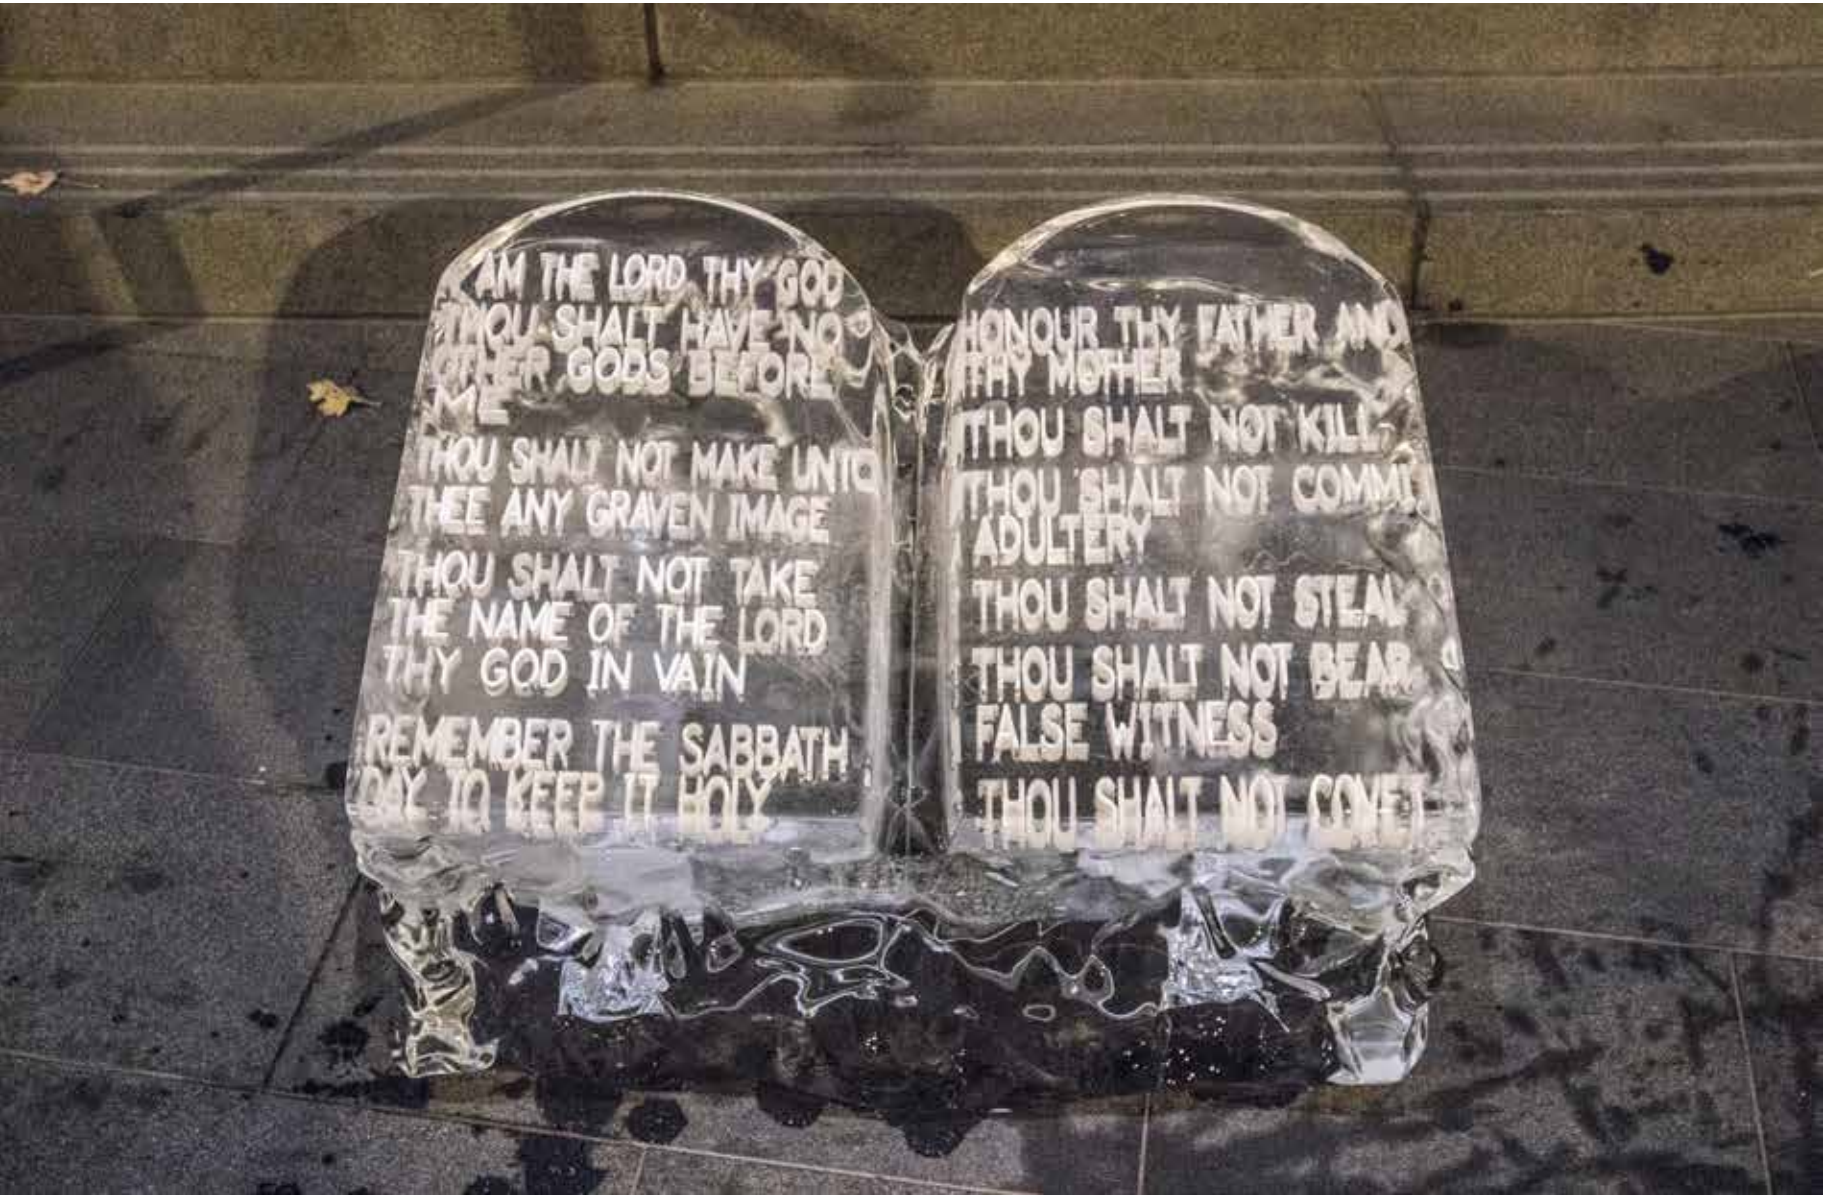 AM THE LORD THY GOD
THOU SHALT HAVE NO
OTHER GODS BEFORE
ME
THOU SHALT NOT MAKE UNTO
THEE ANY GRAVEN IMAGE
THOU SHALT NOT TAKE
THE NAME OF THE LORD
THY GOD IN VAIN
REMEMBER THE SABBATH
DAY TO KEEP IT HOLY
HONOUR THY FATHER AND
THY MOTHER
THOU SHALT NOT KILL
THOU SHALT NOT COMMI
ADULTERY
THOU SHALT NOT STEAL
THOU SHALT NOT BEAR
FALSE WITNESS
THOU SHALT NOT COVET